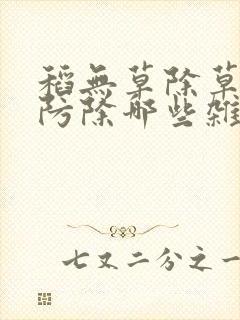 稻無草除草
防除哪些雜
七又二分之一